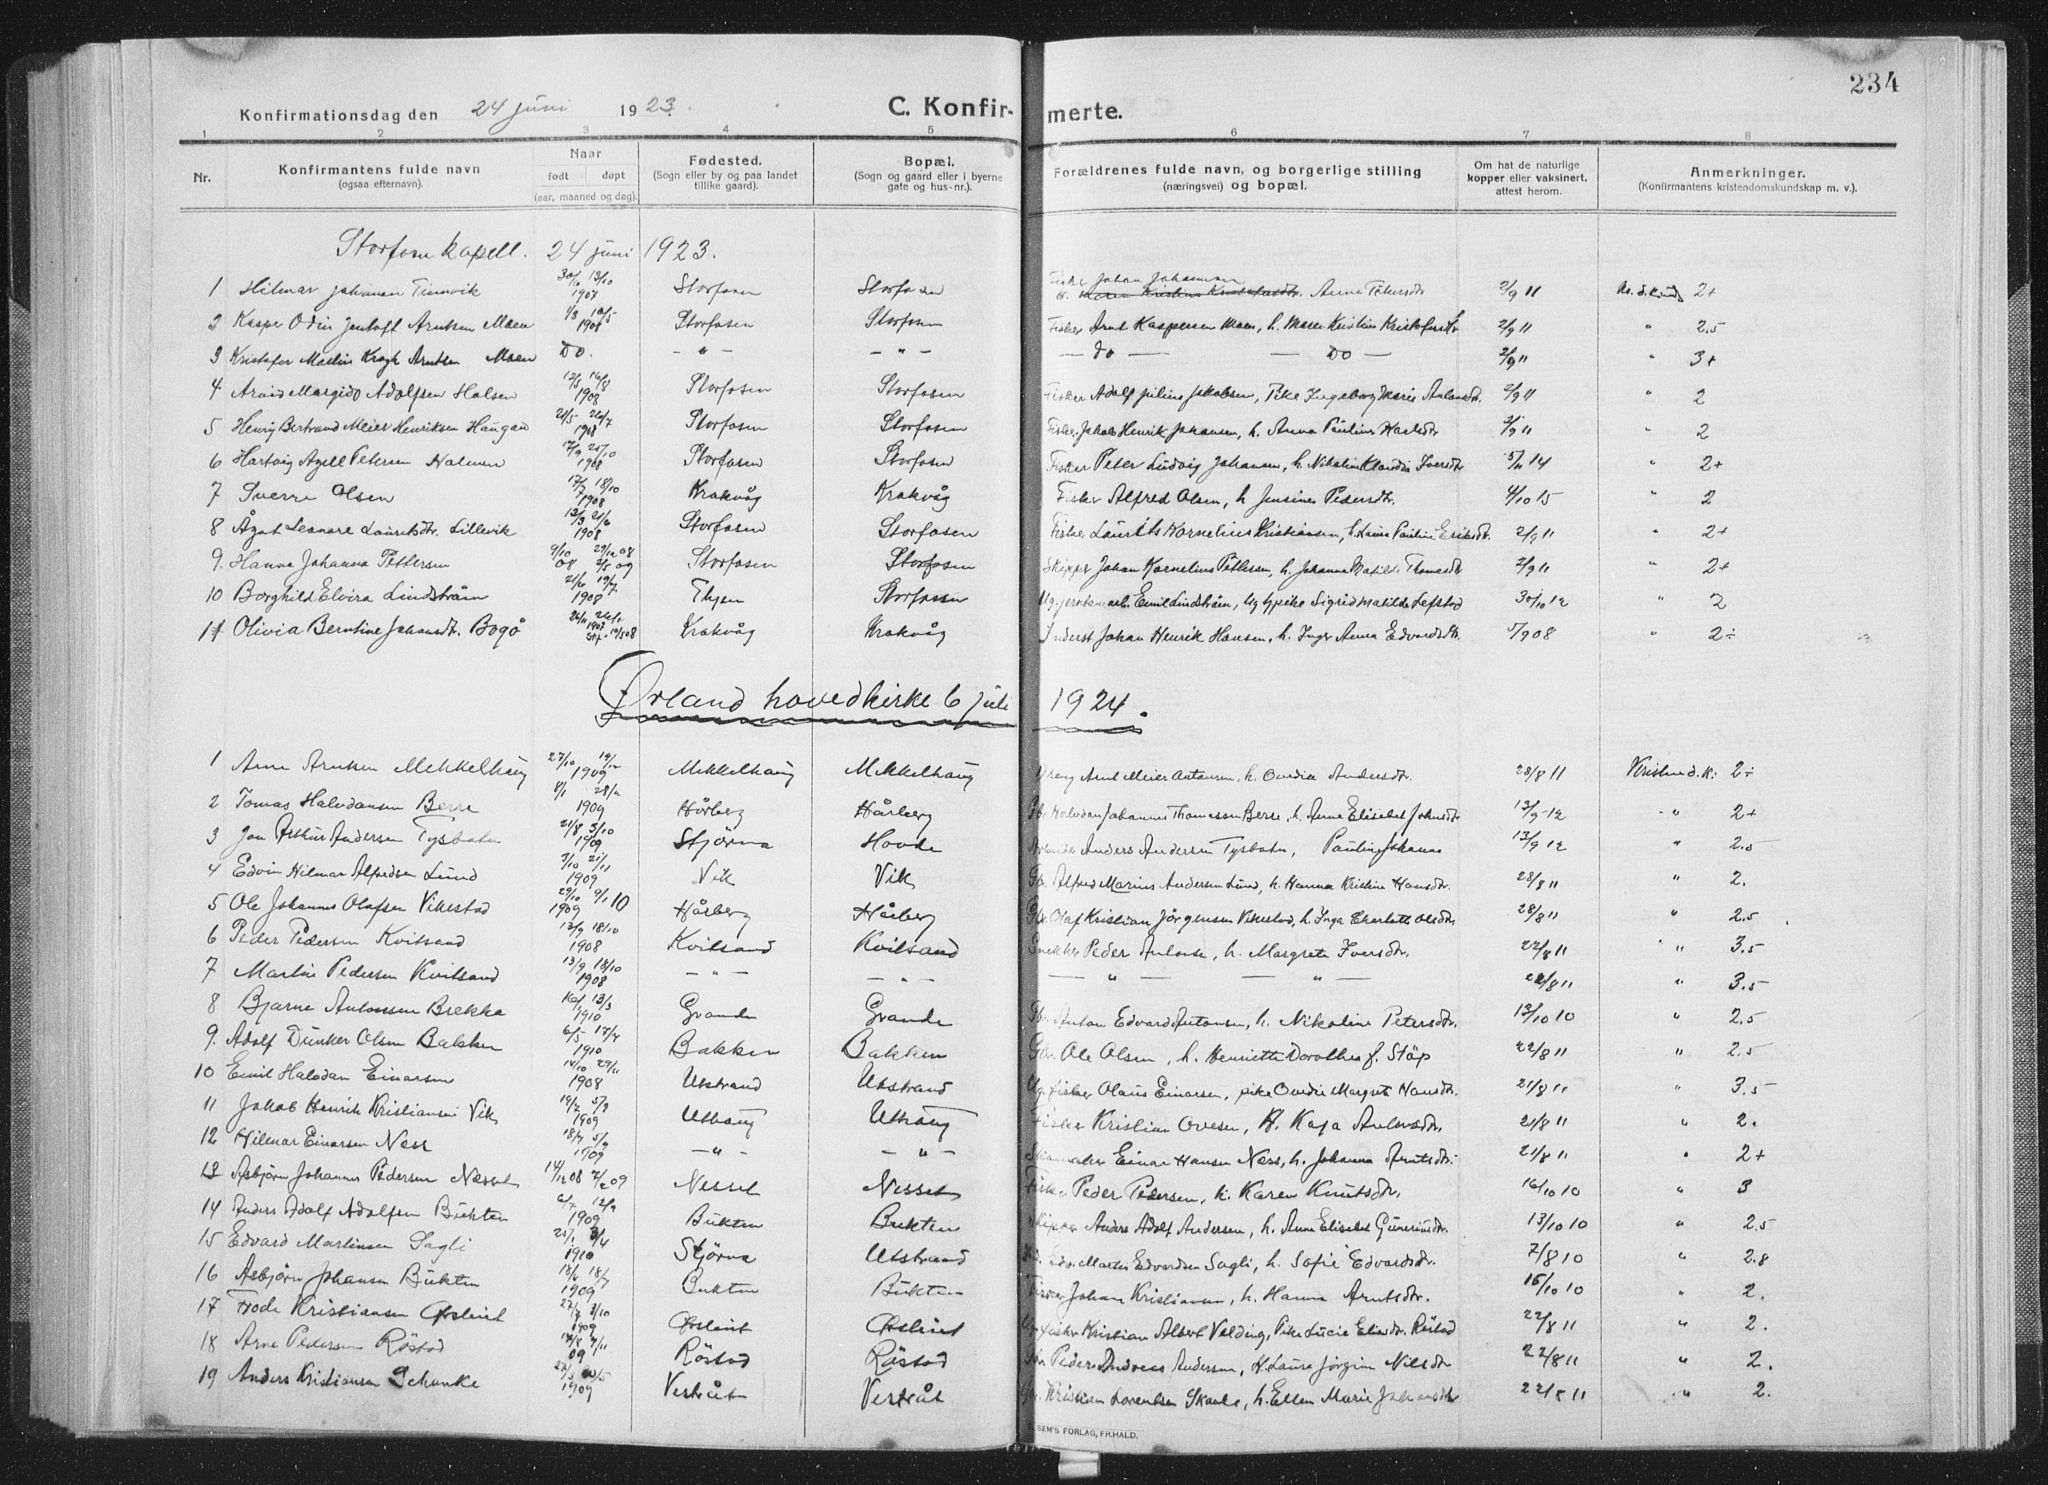 234
Konfirmationsdag den 24 juni 1923. C. Konfirmerte.
1 2 3 4 5 6 7 8
Nr. Konfirmantens fulde navn (ogsaa efternavn). Naar født døpt (aar, maaned og dag). Fødested. (Sogn eller by og paa landet tillike gaard). Bopæl. (Sogn og gaard eller i byerne gate og hus-nr.). Forældrenes fulde navn, og borgerlige stilling (næringsvei) og bopæl. Om hat de naturlige kopper eller vaksinert, attest herom. Anmerkninger. (Konfirmantens kristendomskundskap m. v.).
Storfosn kapell. 24 juni 1923.
1 Hilmar Johansen 1907 Storfosen Storfosen Fisker Johan Johansen Anna 2/9 11 2+
2 Kasper Odin Jentoft Arntsen Moen 1/3 10/5 1908 Storfosen Storfosen Fisker Arnt Kaspersen Moen, h. Maren Kristin 2/9 11 " 2.5
3 Kristofer Martin Krogh Arntsen Moen Do. — " — — " — — do — — Do — 2/9 11 " 3+
4 Arvid Margido Adolfsen Holsen 12/5 16/8 1908 Storfosen Storfosen Fisker Adolf Julius Jakobsen, Pike Ingeborg Marie 2/9 11 " 2
5 Henry Bertrand Meier Henriksen Haugan 21/5 26/7 1908 Storfosen Storfosen Fisker Jakob Henrik Johansen, h. Anna Pauline 2/9 11 " 2
6 Hartvig Petersen 17/9 25/10 1908 Storfosen Storfosen Fisker Peter Ludvig Johansen, h. Nikoline Klaudia Iversdtr 14 " 2+
7 Sverre Olsen 17/7 18/10 1908 Krakvåg Krakvåg Fisker Alfred Olsen, h. Jensine Pedersdtr. 4/10 15 " 2
8 Ågot Leonore Lauritsdtr. Lillevik 12/3 21/6 1908 Storfosen Storfosen Fisker Laurits Kornelius Kristiansen, h. Laura Pauline Eriksdtr. 2/9 11 " 2+
9. Hanna Johanna Pettersen 9/10 08 29/12 08 2/5 09 Storfosen Storfosen Skipper Johan Kornelius Pettersen, h. Johanna Matild. Thomasdtr 2/9 11 " 2+
10 Borghild Elvira Lindstrøm 21/6 19/7 1908 Storfosen Emil Lindstrøm, Sigrid Matilde Lefstad 30/10 12 " 2
11 Olivia Berntine Johansdtr. Bogø 1907 Krakvåg Krakvåg Inderst Johan Henrik Hansen, h. Inger Anna Edvardsdtr. 5/9 08 " 2÷
Ørland hovedkirke 6 juli 1924.
1 Arne Arntsen Mekkelhaug 27/10 19/12 1909 Mekkelhaug Mekkelhaug Arnt Meier Antonsen, h. Ovedia Andersdtr. 28/8 11 Kristend.k: 2÷
2 Tomas Halvdansen Berre 8/1 28/2 1909 Hårberg Hårberg Gb. Halvdan Johannes Thomassen Berre, h. Anne Elisabet Johnsdtr 13/9 12 " 2+
3 Jon Arthur Andersen Tysbotn 21/8 3/10 1909 Stjørna Hovde Anders Andersen Tysbotn, Pauline Johanna 13/9 12 " 2.5
4 Edvin Hilmar Alfredsen Lund 3/10 21/11 1909 Vik Vik Gb. Alfred Marius Andersen Lund, h. Hanna Kristine Hansdtr. 28/8 11 " 2.
5 Ole Johannes Olafsen Vikestad 29/10 1909 9/1 10 Hårberg Hårberg Gb. Olaf Kristian Jørgensen Vikestad, h. Inga Charlotte Olsdtr 28/8 11 " 2.5
6 Peder Pedersen Kvitsand 13/9 18/10 1908 Kvitsand Kvitsand Snekker Peder Antonse, h. Margrete Iversdtr. 22/8 11 " 3.5
7 Martin Pedersen Kvitsand 13/9 18/10 1908 — " — — " — — " — — " — 22/8 11 " 3.5
8 Bjarne Antonssen Brekka 13/3 1910 Grande Grande Gb. Anton Edvard Antonsen, h. Nikoline Petersdtr. 13/10 10 " 2.5
9. Adolf Dunker Olsen Bakken 6/5 17/7 1910 Bakken Bakken Gb. Ole Olsen, h. Henriette Dorothea f. Støp 22/8 11 " 2.5
10 Emil Halvdan Einarsen 1908 Utstrand Utstrand Ug. fisker Olaus Einarsen, pike Ovedie Margrete Hansdtr. 21/8 11 " 3.5
11 Jakob Henrik Kristiansen Vik 19/7 5/9 1909 Uthaug Uthaug Fisker Kristian Ovesen, h. Kaja Antonsdtr. 21/8 11 " 2.
12 Hilmar Einarsen Ness 18/7 5/9 1909 — " — — " — Skomaker Einar Hansen Ness, h. Johanna Arntsdtr. 21/8 11 " 2+
13 Asbjørn Johannes Pedersen Nesset 14/12 08 7/2 09 Nesset Nesset Fisker Peder Pedersen, h. Karen Knutsdtr. 16/10 10 " 3
14 Anders Adolf Adolfsen Bukten 6/7 12/9 1909 Bukten Bukten Skipper Anders Adolf Andersen, h. Anne Elisabet Guneriusdtr. 13/10 10 " 2.5
15 Edvard Martinsen Sagli 1910 Stjørna Utstrand Martin Edvardsen Sagli, h. Sofie Edvardsdtr. 7/8 10 " 2.8
16 Asbjørn Johansen Bukten 18/6 18/7 1909 Bukten Bukten Fisker Johan Kristiansen, h. Hanna Arntsdtr. 15/10 10 " 2.
17 Frode Kristiansen Opslint 1909 Opslint Opslint Ug. fisker Kristian Albert Velding, Pike Lucie Eliasdtr. Røstad 22/8 11 " 2.
18 Arne Pedersen Røstad 09 Røstad Røstad Gbr. Peder Andreas Andersen, H. Laura Jørgine Nilsdtr 22/8 11 " 2.
19 Anders Kristiansen Schanke 1909 Vestråt Vestråt Gb. Kristian Lorentsen Skanke, h. Ellen Marie Johansdtr 22/8 11 " 2.
SEM'S FORLAG, FR.HALD.